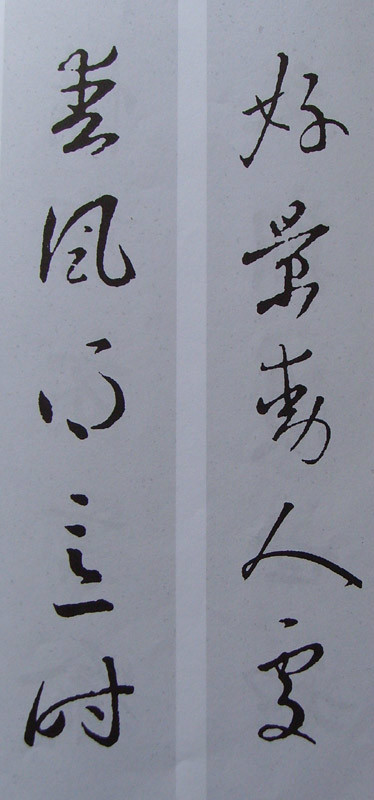 好景動人處
春風得意時